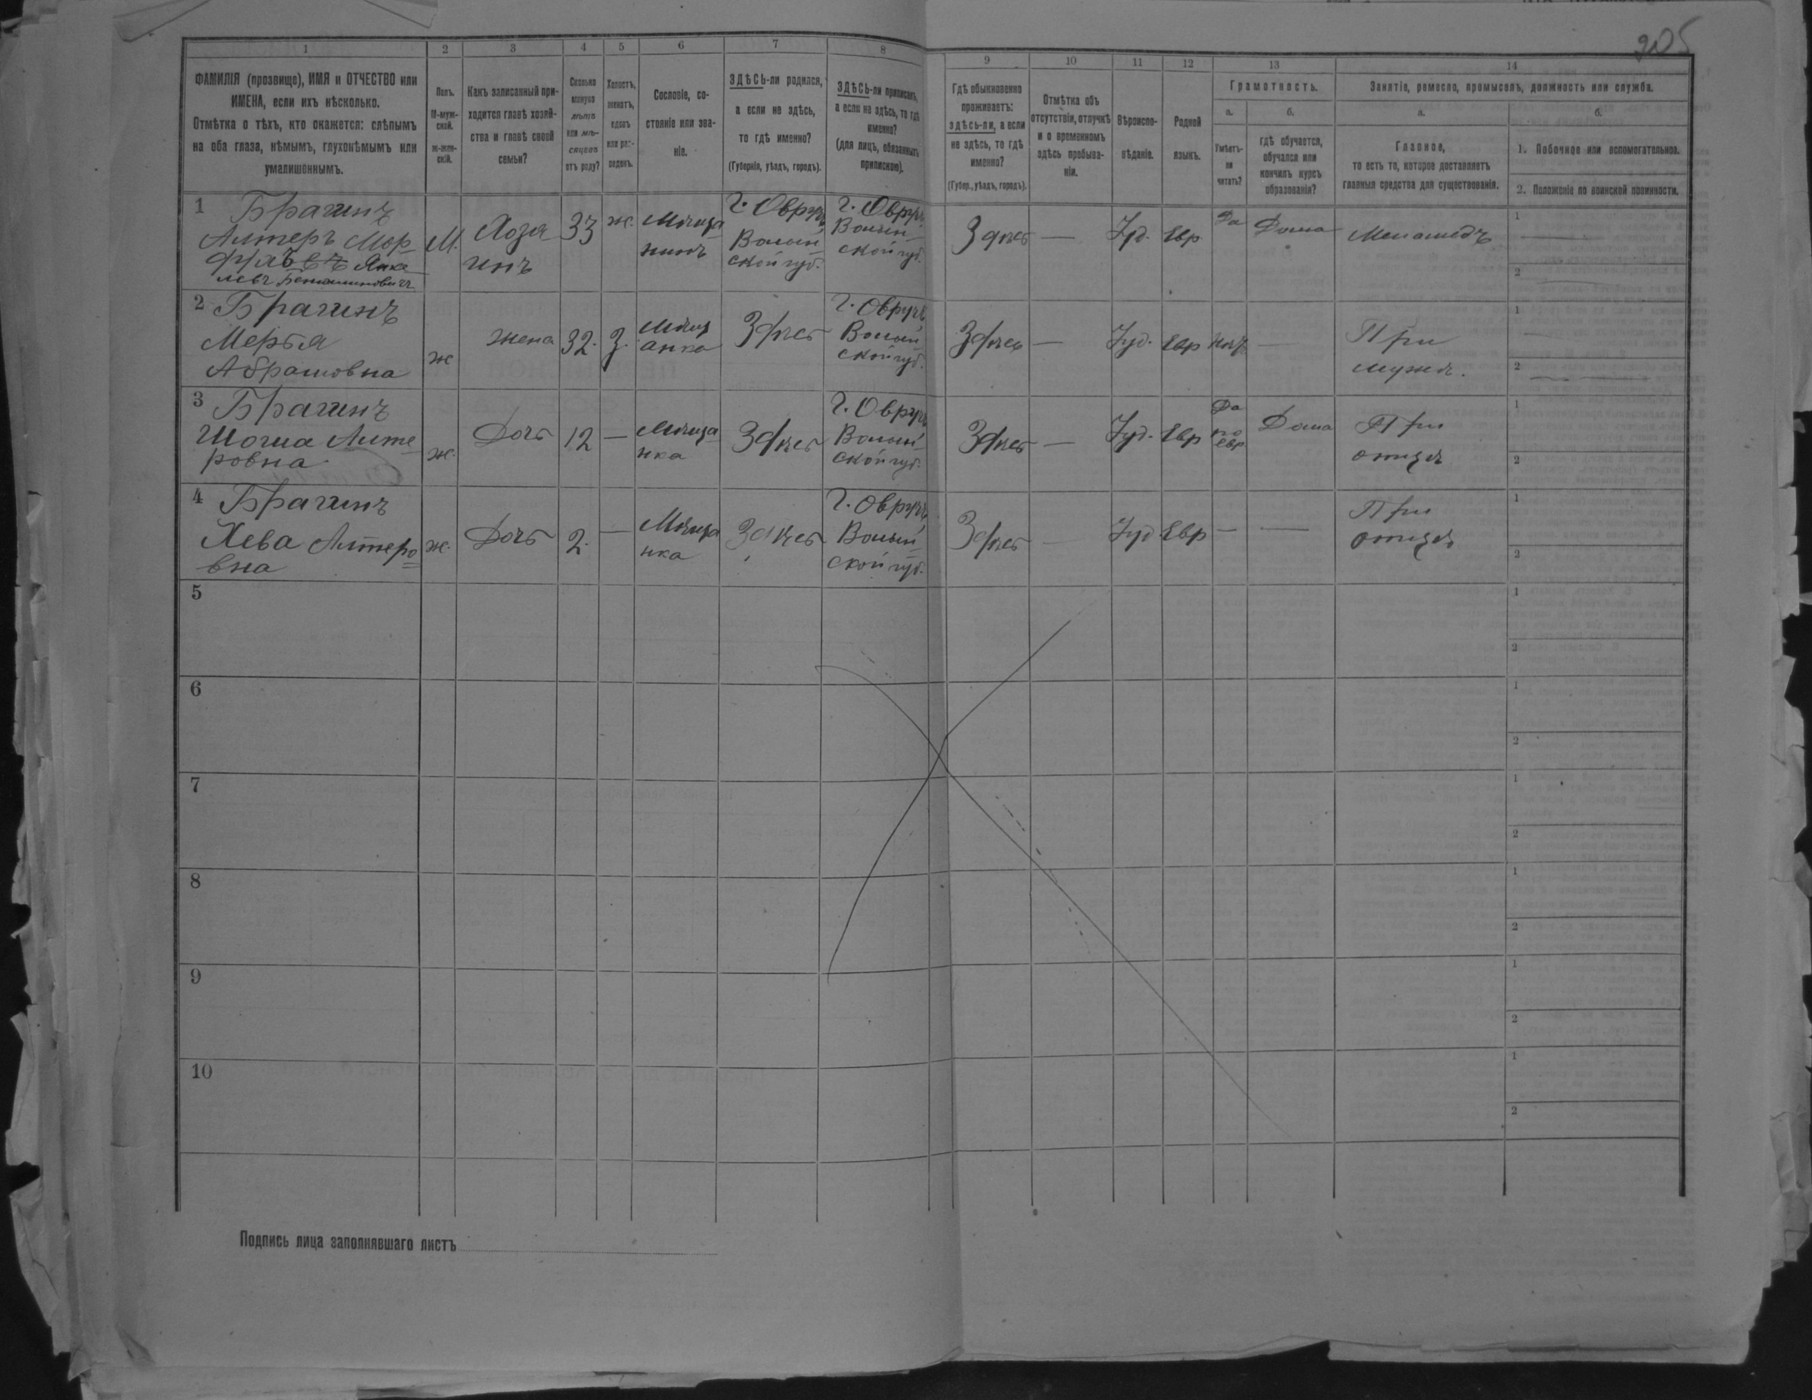 205
1
2
3
4
5
6
7
8
9
10
11
12
13
14
ФАМИЛІЯ (прозвище), ИМЯ и ОТЧЕСТВО или
ИМЕНА, если ихъ нѣсколько.
Отмѣтка о тѣхъ, кто окажется: слѣпымъ
на оба глаза, нѣмымъ, глухонѣмымъ или
умалишеннымъ.
Полъ.
М-муж-
ской.
Ж-жен-
скій.
Какъ записанный при-
ходится главѣ хозяй-
ства и главѣ своей
семьи?
Сколько
минуло
лѣтъ
или мѣ-
сяцевъ
отъ роду?
Холостъ,
женатъ,
вдовъ
или раз-
веденъ.
Сословіе, со-
стояніе или зва-
ніе.
ЗДѢСЬ-ли родился,
а если не здѣсь,
то гдѣ именно?
(Губернія, уѣздъ, городъ).
ЗДѢСЬ-ли приписанъ,
а если не здѣсь, то гдѣ
именно?
(для лицъ, обязанныхъ
припискою).
Гдѣ обыкновенно
проживаетъ:
здѣсь-ли, а если
не здѣсь, то гдѣ
именно?
(Губер., уѣздъ, городъ).
Отмѣтка объ
отсутствіи, отлучкѣ
и о временномъ
здѣсь пребыва-
ніи.
Вѣроиспо-
вѣданіе.
Родной
языкъ.
Грамотность.
а.
б.
Умѣетъ-
ли
читать?
гдѣ обучается,
обучался или
кончилъ курсъ
образованія?
Занятіе, ремесло, промыселъ, должность или служба.
а.
б.
Главное,
то есть то, которое доставляетъ
главныя средства для существованія.
1. Побочное или вспомогательное.
2. Положеніе по воинской повинности.
1 Брагинъ
Алтеръ Мор
Янке
левъ Беніаминовичъ
М.
Хозя
инъ
33
ж.
Мѣща
нинъ
г. Овручъ
Волын
ской губ.
г. Овручъ
Волын
ской губ.
Здѣсь
—
Іуд.
Евр
Да
Дома
Меламедъ
1
2
2 Брагинъ
Мерья
Абрамовна
ж
жена
32.
З.
Мѣщ
анка
Здѣсь
г. Овручъ
Волын
ской губ.
Здѣсь
—
Іуд.
Евр
нѣтъ
—
При
мужѣ.
1
2
3 Брагинъ
Шогма Алте
ровна
ж.
Дочь
12
—
Мѣща
нка
Здѣсь
г. Овручъ
Волын
ской губ.
Здѣсь
—
Іуд.
Евр
Да
по
евр
Дома
При
отцѣ
1
2
4 Брагинъ
Хева Алтеро
вна
ж.
Дочь
2.
—
Мѣща
нка
Здѣсь
г. Овручъ
Волын
ской губ.
Здѣсь
—
Іуд
Евр
—
—
При
отцѣ
1
2
5
1
2
6
1
2
7
1
2
8
1
2
9
1
2
10
1
2
Подпись лица заполнявшаго листъ